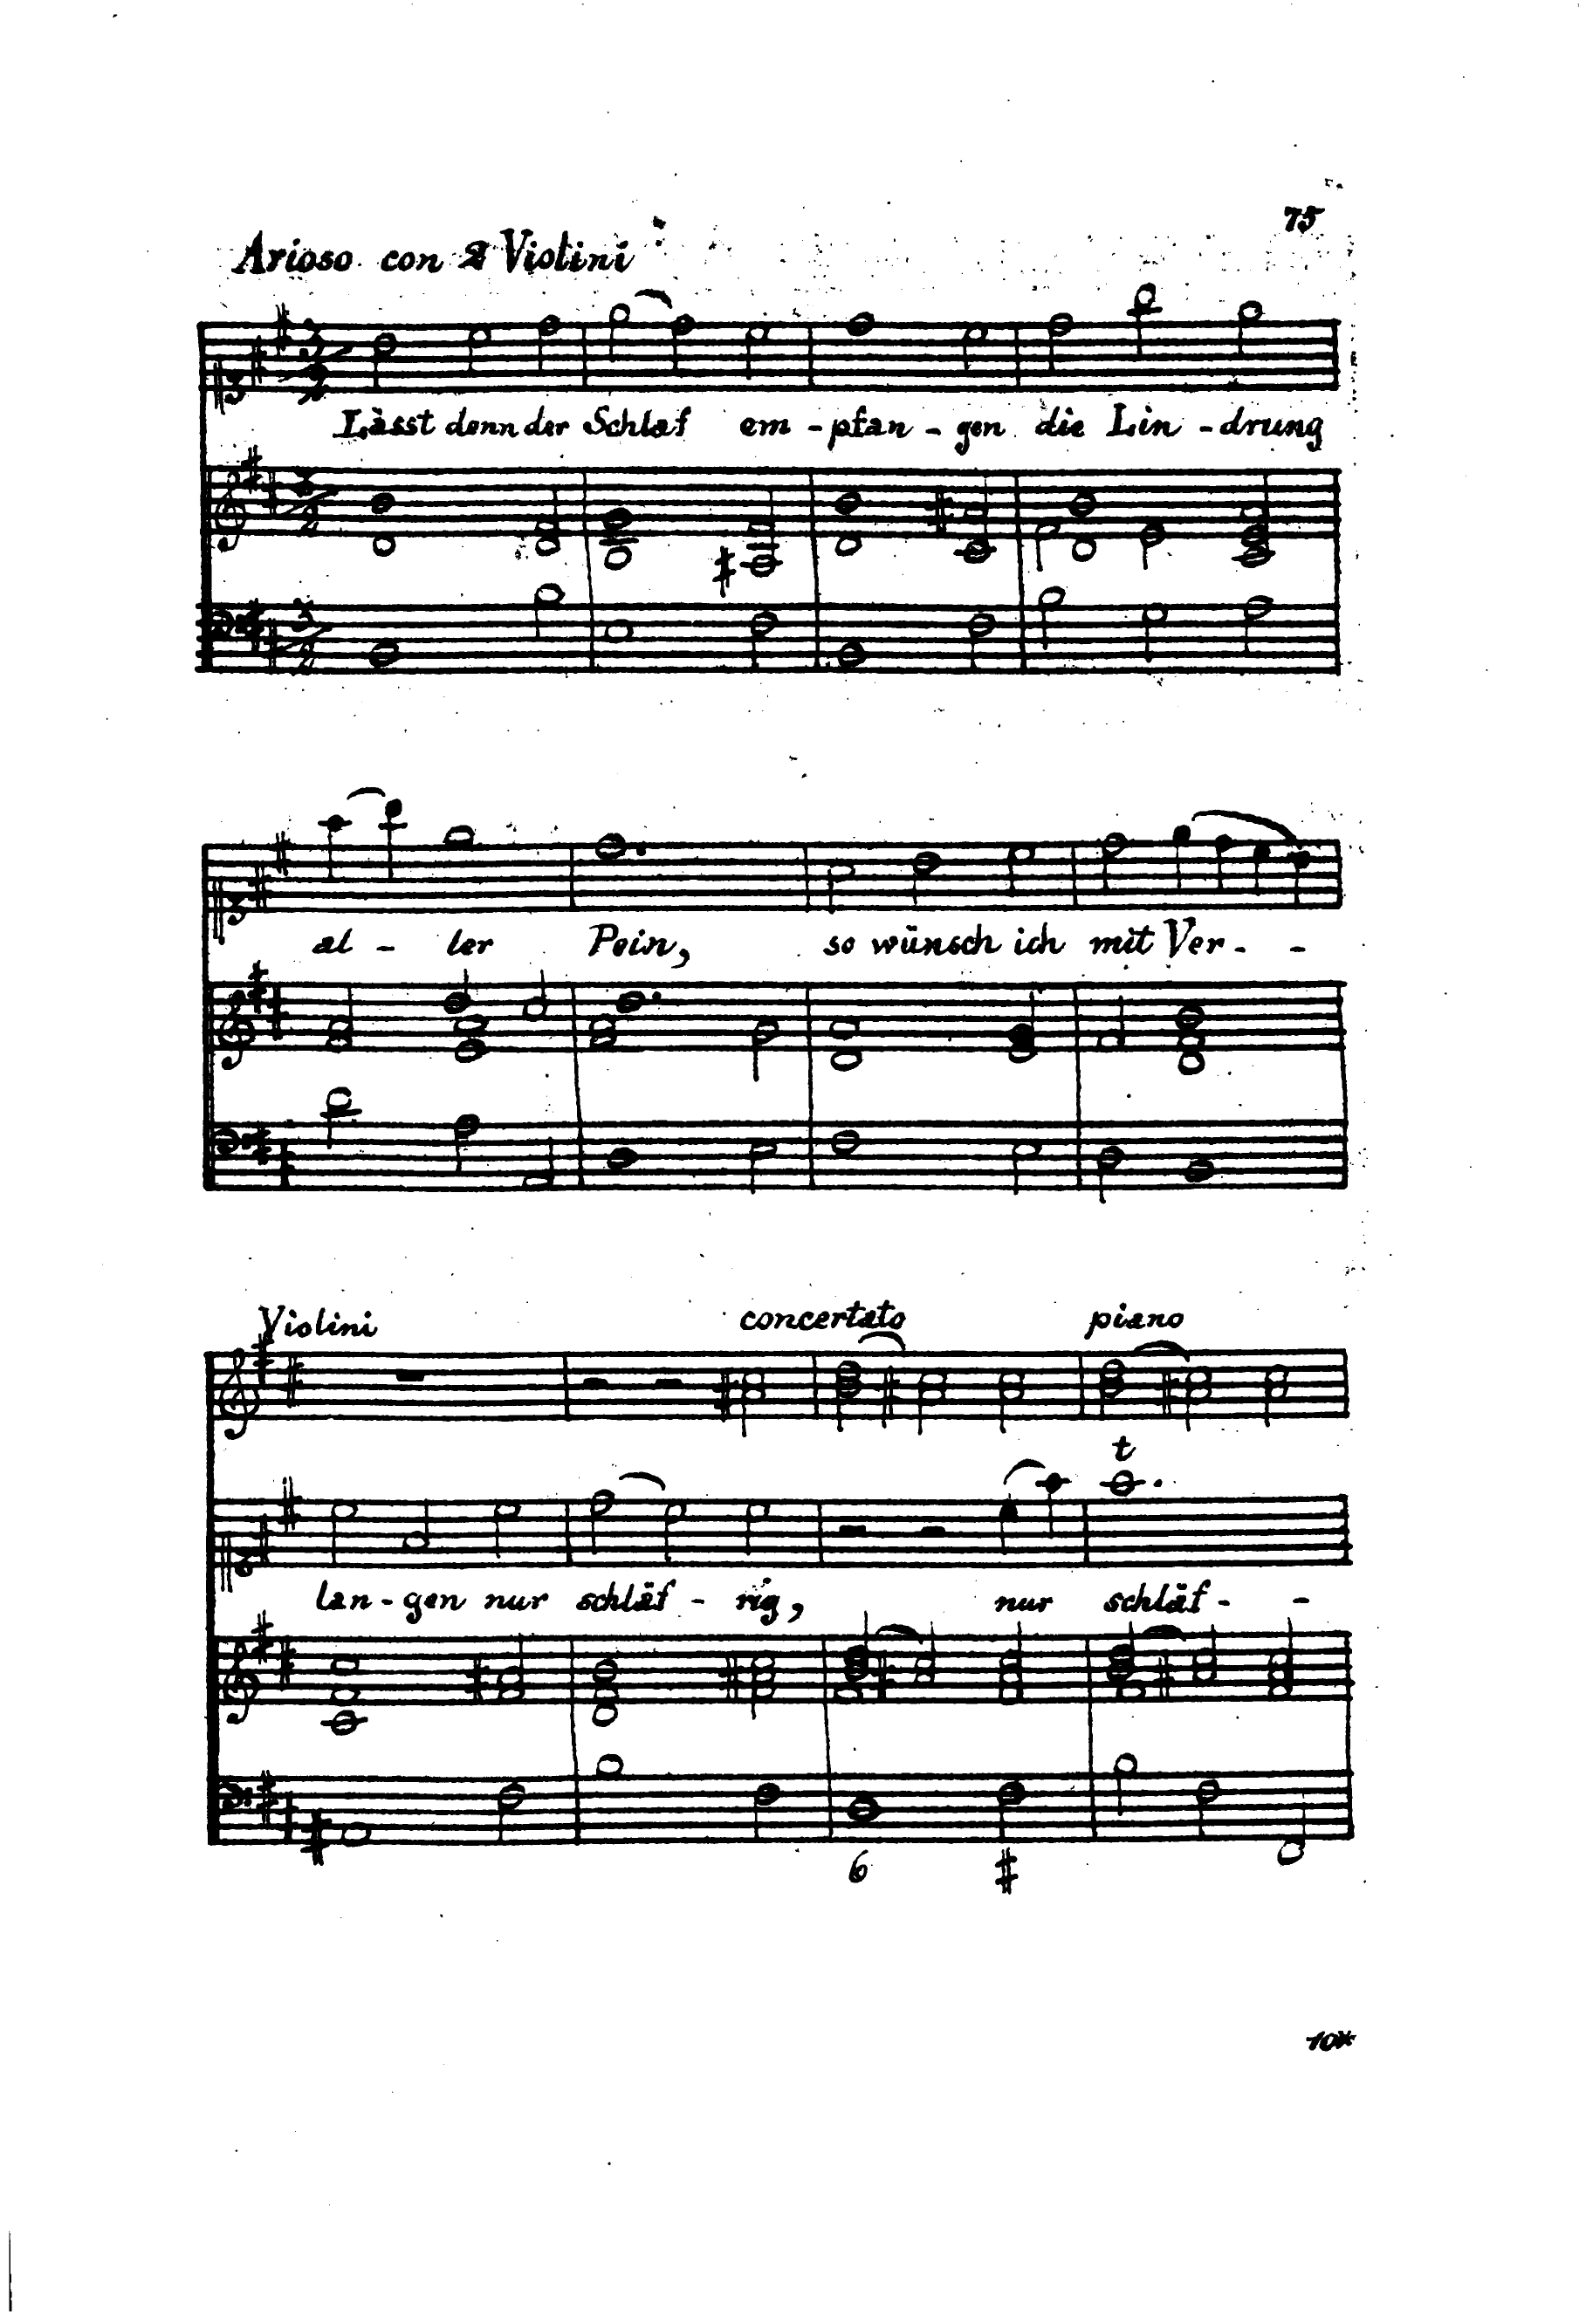 75
Arioso con 2 Violini
Lässt denn der Schlaf em - pfan - gen die Lin - drung
al - ler Pein, so wünsch ich mit Ver - -
Violini concertato piano
t
lan - gen nur schläf - rig, nur schläf - -
6 #
10*